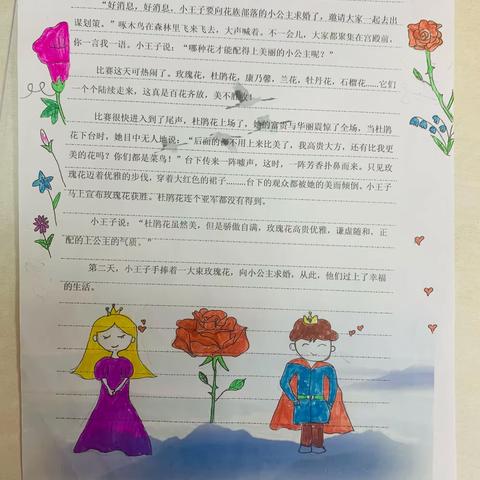 “好消息，好消息，小王子要向花族部落的小公主求婚了，邀请大家一起去出
谋划策。”啄木鸟在森林里飞来飞去，大声喊着。不一会儿，大家都聚集在宫殿前，
你一言我一语。小王子说：“哪种花才能配得上美丽的小公主呢？”
比赛这天可热闹了。玫瑰花，杜鹃花，康乃馨，兰花，牡丹花，石榴花……它们
一个个陆续走来，这真是百花齐放，美不胜收！
比赛很快进入到了尾声，杜鹃花上场了，她的富贵与华丽震惊了全场，当杜鹃
花下台时，她目中无人地说：“后面的都不用上来比美了，我高贵大方，还有比我更
美的花吗？你们都是菜鸟！”台下传来一阵嘘声，这时，一阵芳香扑鼻而来。只见玫
瑰花迈着优雅的步伐，穿着大红色的裙子………台下的观众都被她的美而倾倒。小王子
马上宣布玫瑰花获胜。杜鹃花连个亚军都没有得到。
小王子说：“杜鹃花虽然美，但是骄傲自满，玫瑰花高贵优雅，谦虚随和，正
配的上公主的气质。”
第二天，小王子手捧着一大束玫瑰花，向小公主求婚。从此，他们过上了幸福
的生活。